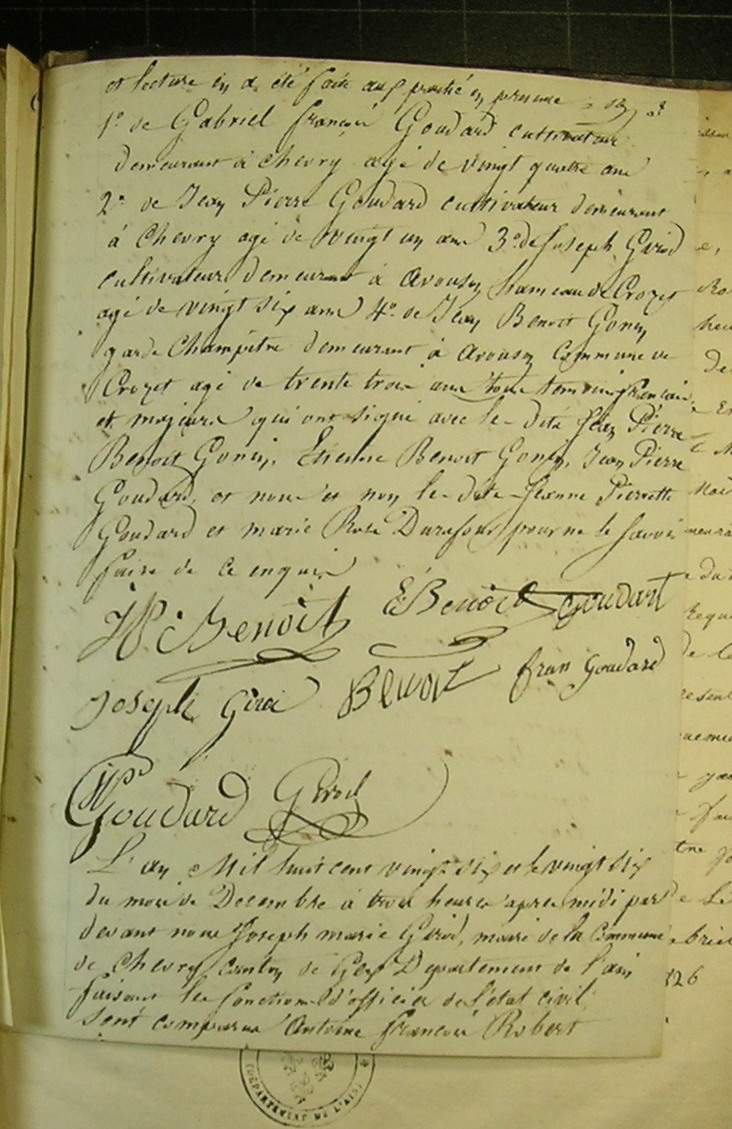 et lecture en a été faite aux parties en présence
1º. de Gabriel françois Goudard cultivateur
demeurant à chevry agé de vingt quatre ans
2º. de Jean Pierre Goudard cultivateur demeurant
à Chevry agé de vingt un ans 3º. de Joseph Girod
cultivateur demeurant à avouson hameau de Crozet
agé de vingt six ans 4º. de Jean Benoit Gonin
garde Champêtre demeurant à avouson Commune de
Crozet agé de trente trois ans tous temoins français
et majeurs qui ont signé avec les dits Jean Pierre
Benoit Gonin, Etienne Benoit Gonin, Jean Pierre
Goudard, et nous et non les dites Jeanne Pierrette
Goudard et marie Rose Durafour pour ne le savoir
faire de ce enquis
JP Benoit E Benoit Goudart
Joseph Giro Benoit fran Goudard
JP Goudard Girod
L'an Mil huit cent vingt six et le vingt six
du mois de Decembre à trois heures apres midi par
devant nous Joseph marie Girod, maire de la Commune
de Chevry canton de Gex Departement de l'ain
faisant les fonctions d'officier de l'état civil
sont comparus Antoine françois Robert
DÉPARTEMENT DE L'AIN